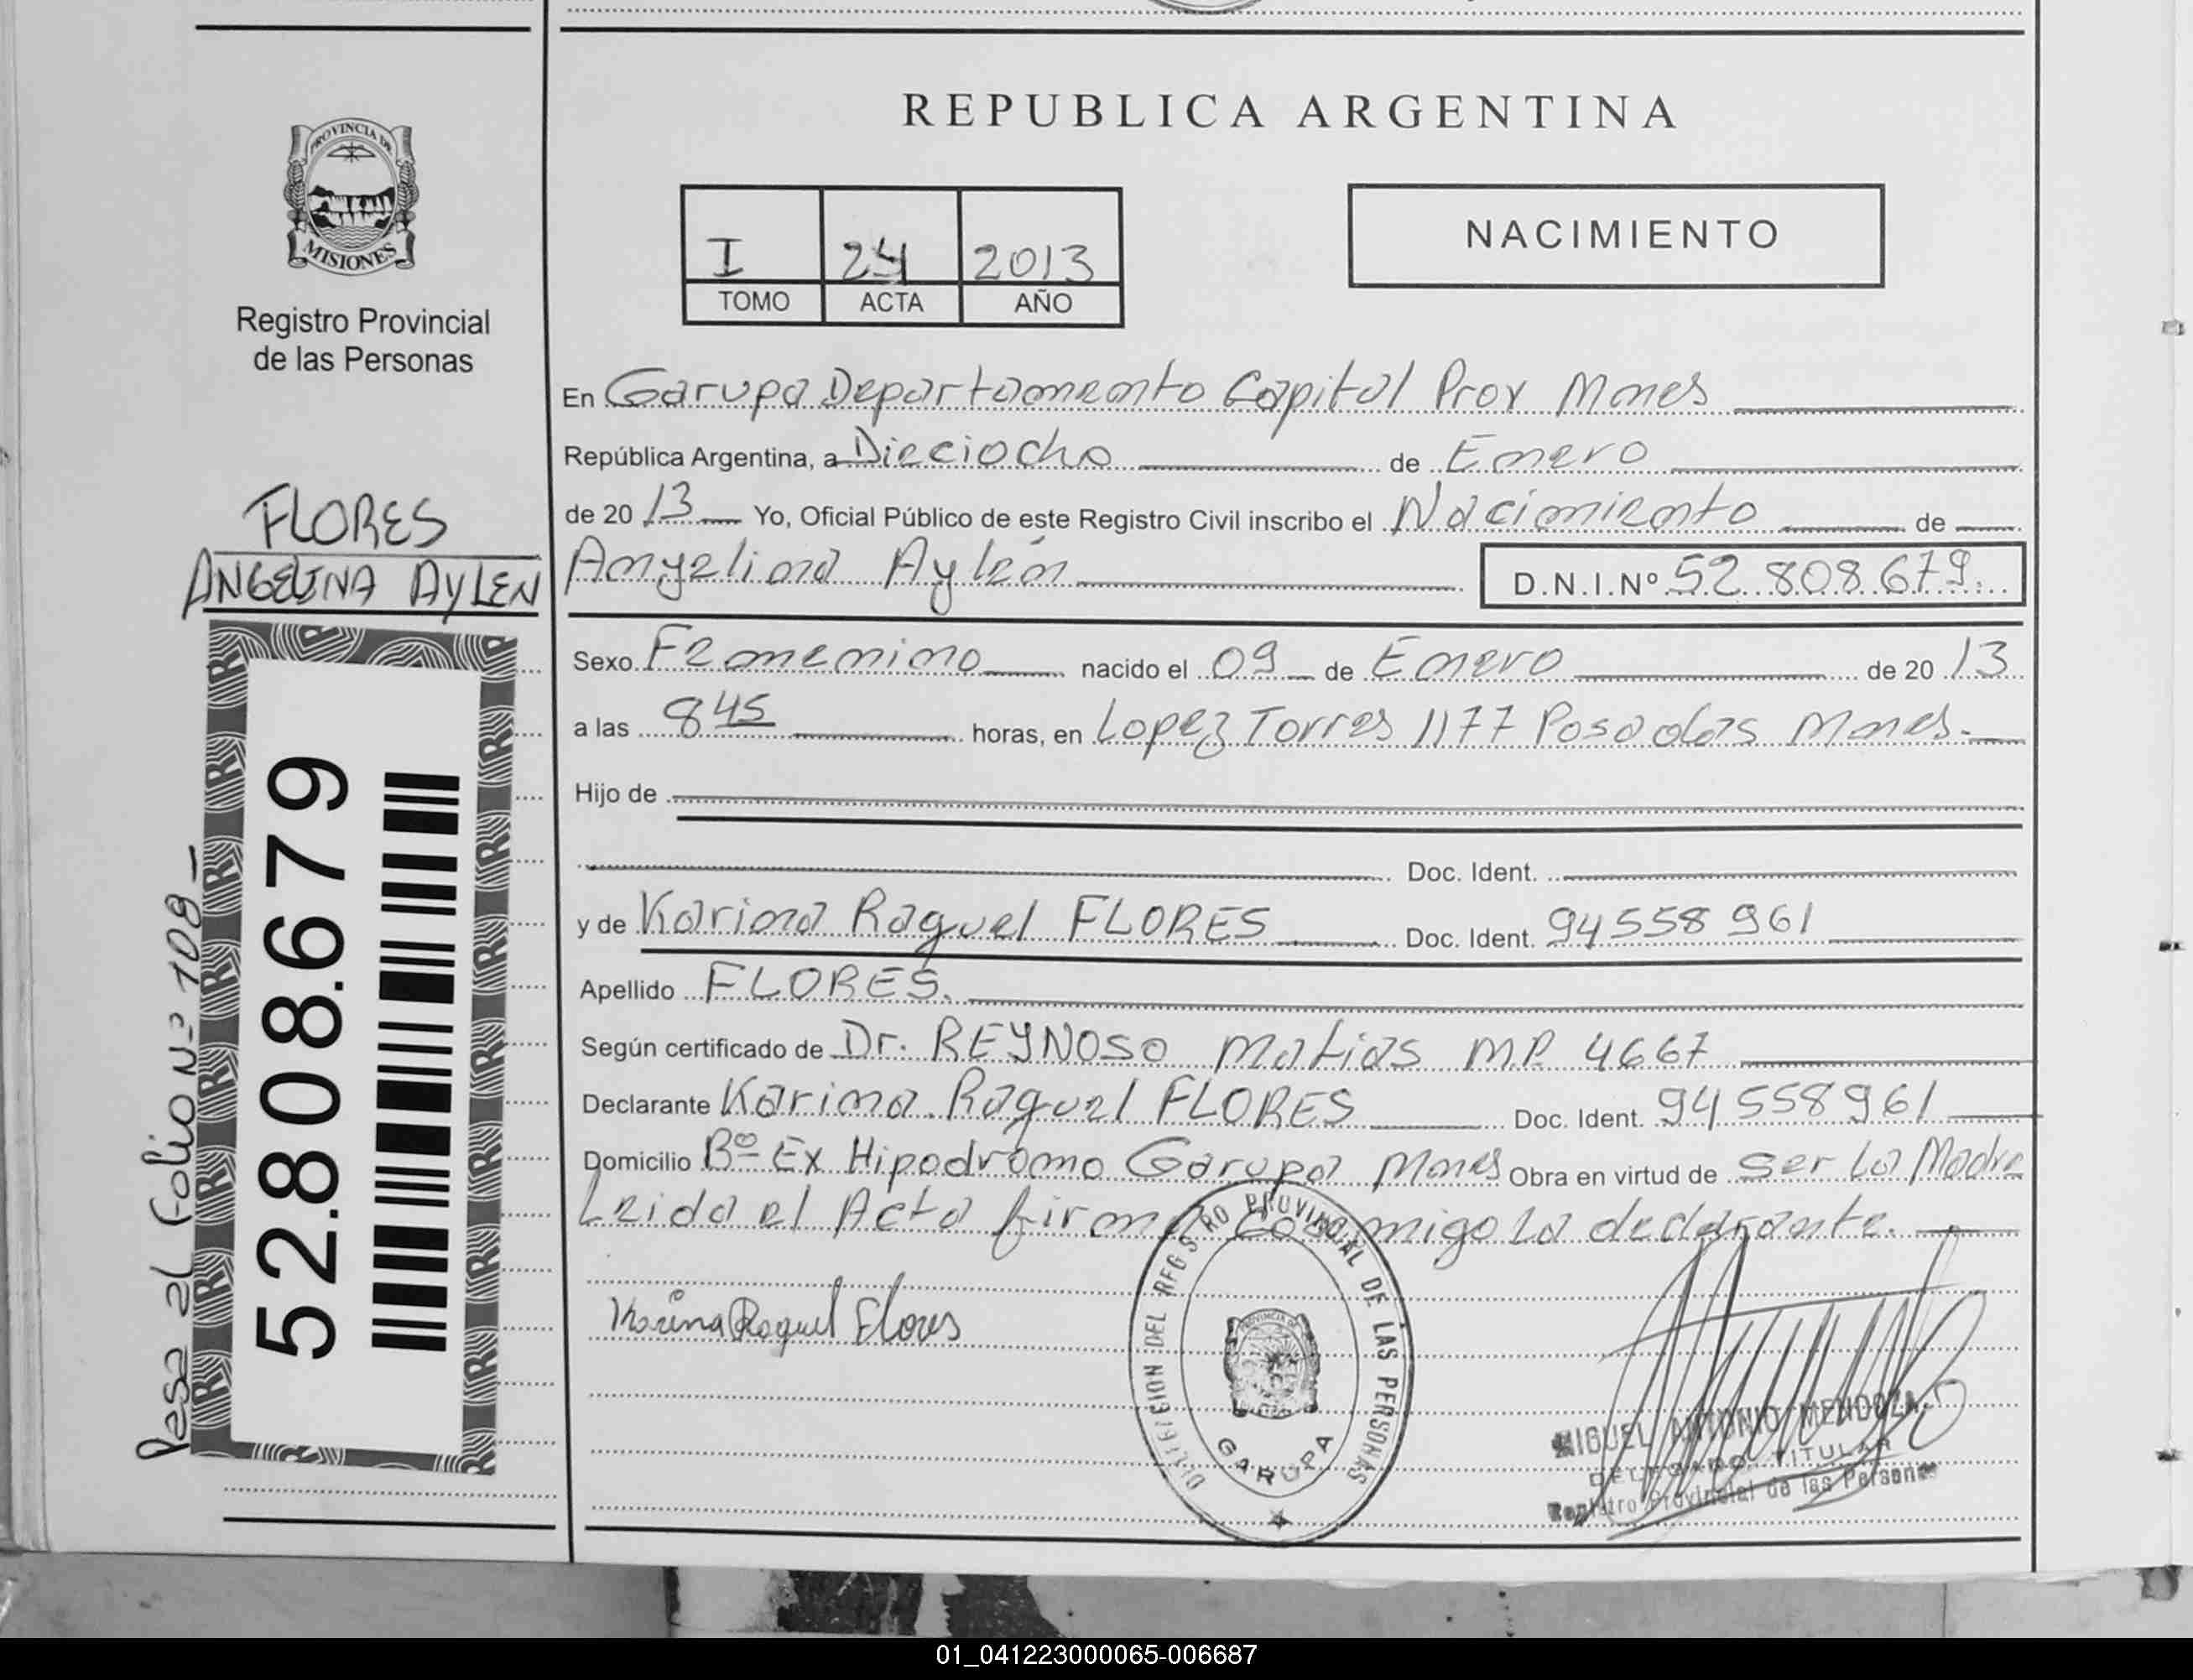 REPUBLICA ARGENTINA
PROVINCIA DE
MISIONES
Registro Provincial
de las Personas
I 24 2013
TOMO ACTA AÑO
NACIMIENTO
En Garupa Departamento Capital Prov Mnes
República Argentina, a Dieciocho de Enero
de 20 13 Yo, Oficial Público de este Registro Civil inscribo el Nacimiento de
Angelina Aylén D.N.I.Nº 52.808.679.
FLORES
ANGELINA AYLEN
Sexo Femenino nacido el 09 de Enero de 20 13
a las 8 45 horas, en Lopez Torres 1177 Posadas Mnes.
Hijo de
Doc. Ident.
y de Karina Raquel FLORES Doc. Ident. 94558961
Apellido FLORES.
Según certificado de Dr. REYNOSO Matias MP. 4667
Declarante Karina Raquel FLORES Doc. Ident. 94558961
Domicilio Bº Ex Hipodromo Garupa Mnes Obra en virtud de ser La Madre
Leida el Acta firma conmigo La declarante.
52.808.679
Pasa al Folio Nº 108-
Karina Raquel Flores
DIRECCION DEL REGISTRO PROVINCIAL DE LAS PERSONAS
GARUPA
MIGUEL ANTONIO MENDOZA
DELEGADO TITULAR
Registro Provincial de las Personas
01_041223000065-006687